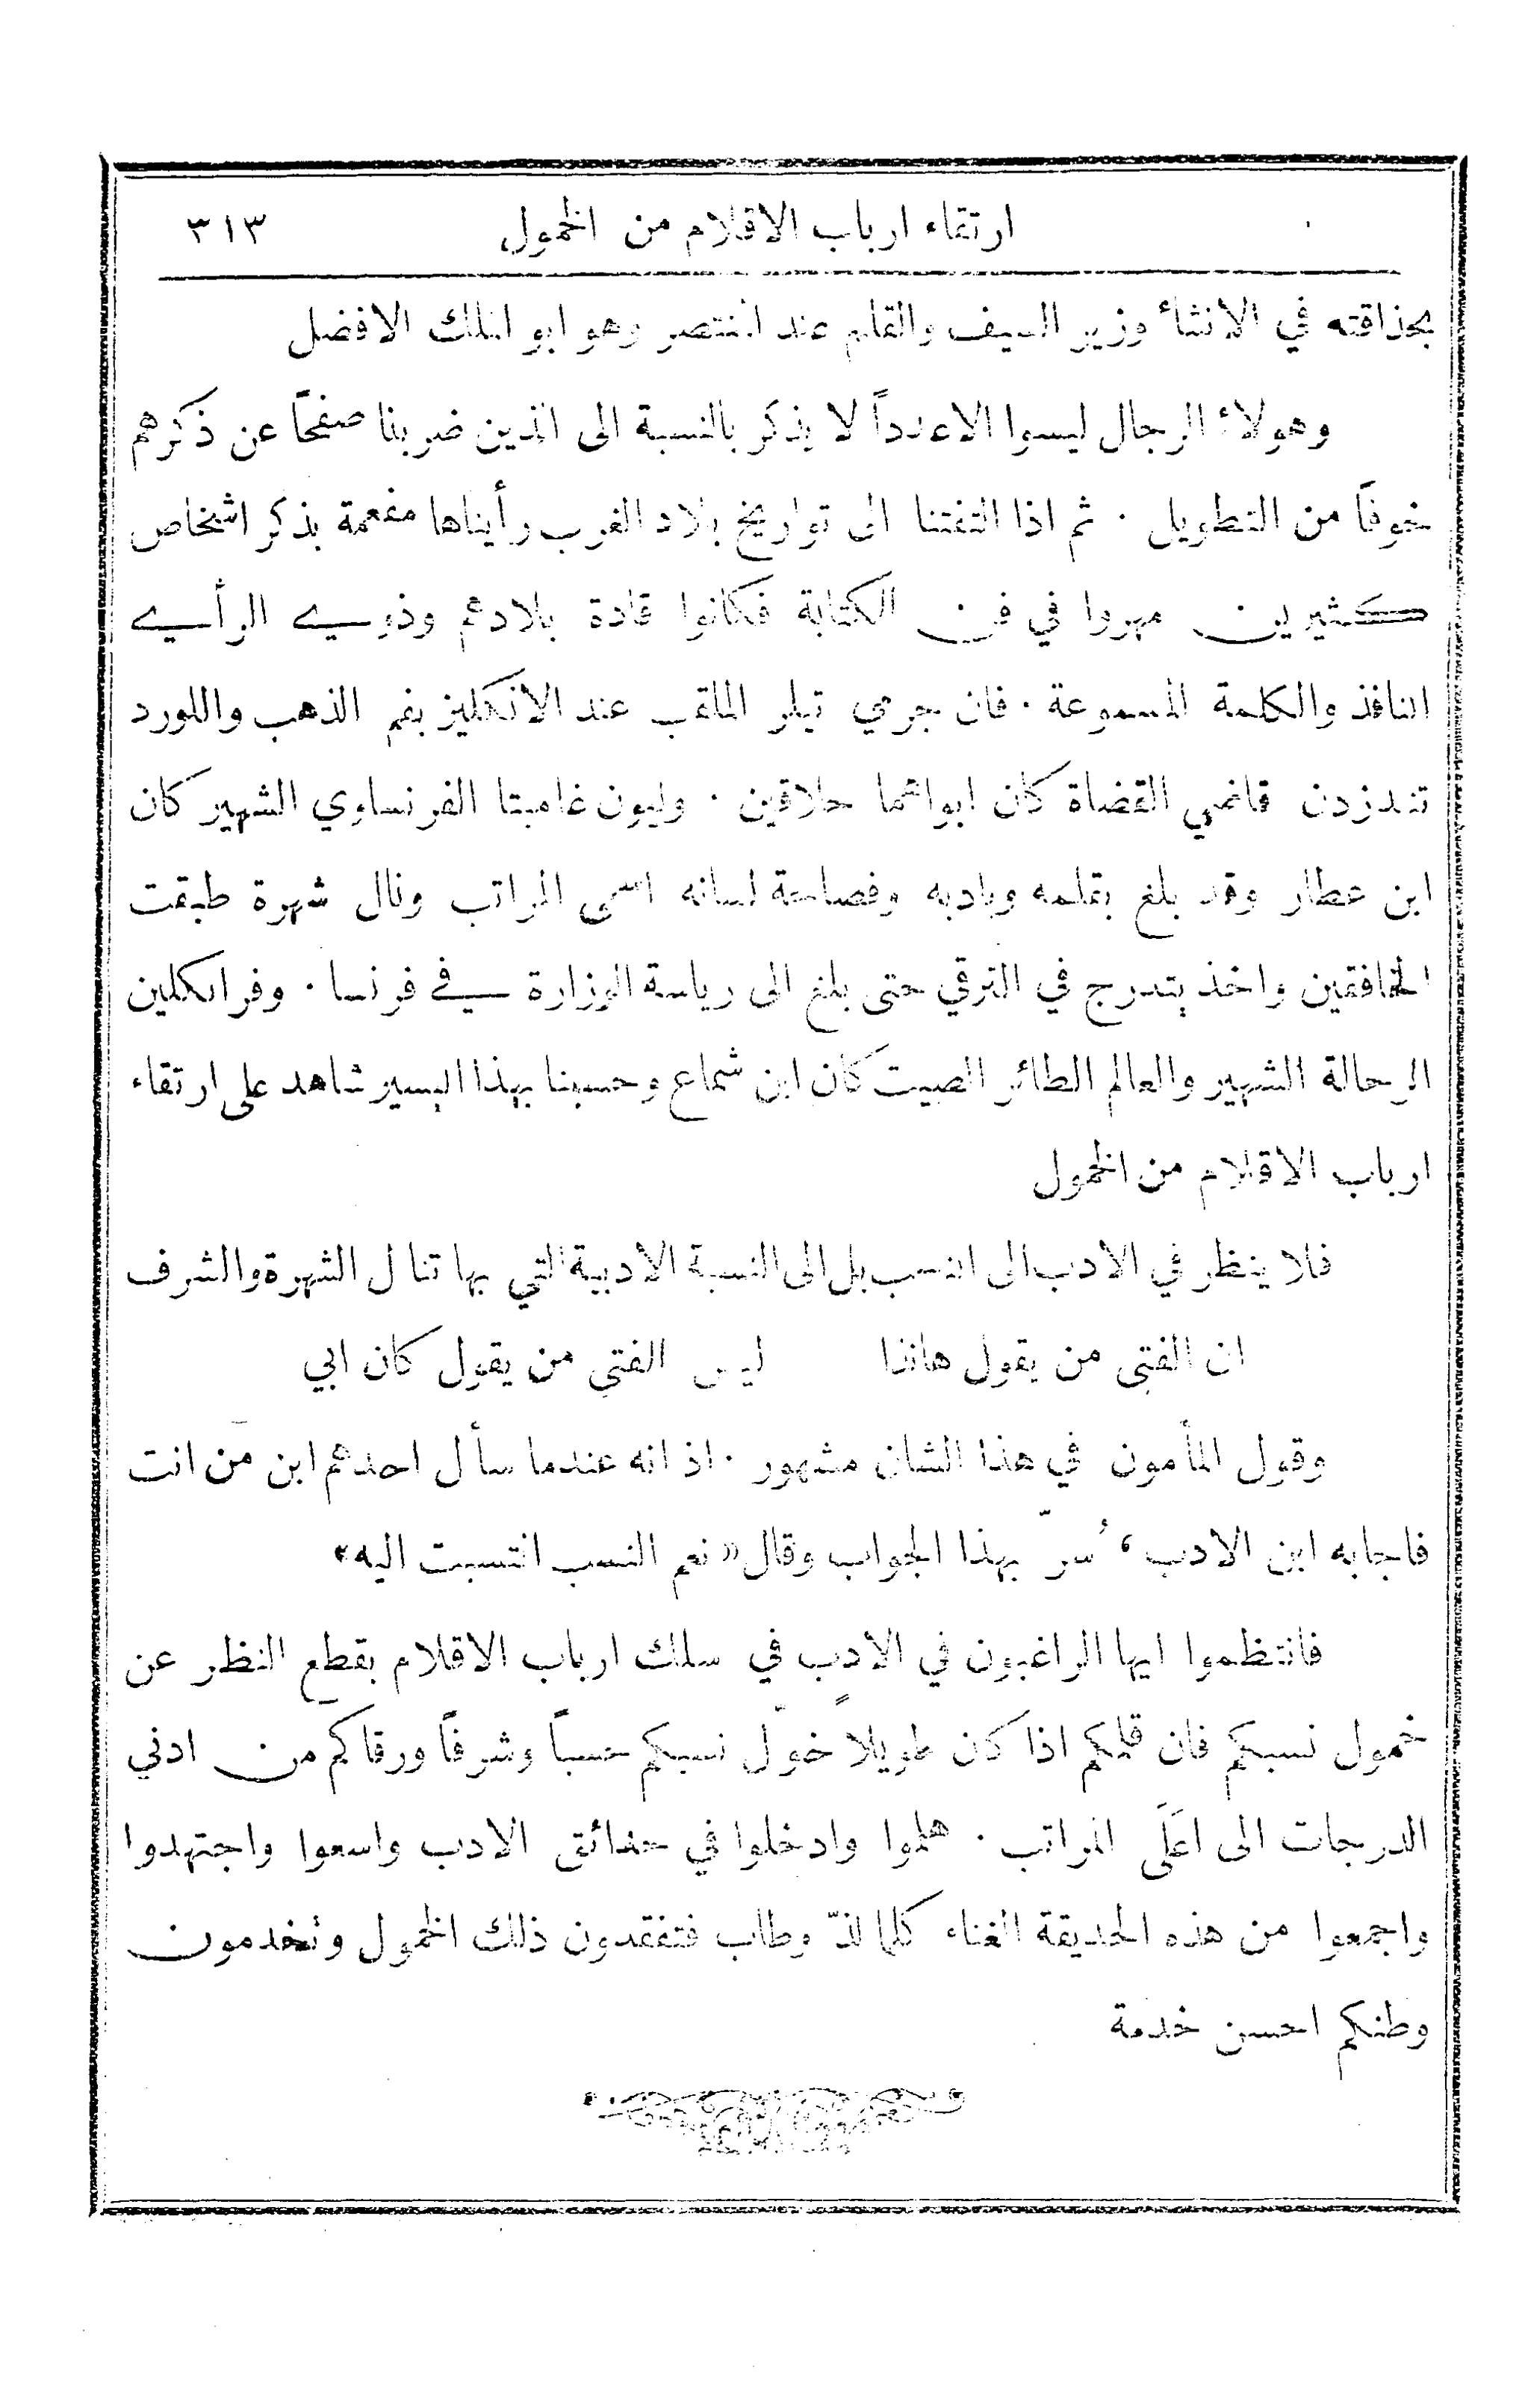 ارتقاء ارباب الاقلام من الخمول ٣١٣
بحذاقته في الانشاء وزير السيف والقلم عند المنتصر وهو ابو الملك الافضل
وهولاء الرجال ليسوا الا عدداً لا يذكر بالنسبة الى الذين ضربنا صفحاً عن ذكرهم
خوفاً من التطويل . ثم اذا التفتنا الى تواريخ بلاد الغرب رأيناها مفعمة بذكر اشخاص
كثيرين مهروا في فن الكتابة فكانوا قادة بلادهم وذوي الرأي
النافذ والكلمة المسموعة . فان جرمي تيلر الملقب عند الانكليز بفم الذهب واللورد
تندزدن قاضي القضاة كان ابواهما حلاقين . وليون غامبتا الفرنساوي الشهير كان
ابن عطار وقد بلغ بقلمه وبادبه وفصاحة لسانه اسمى المراتب ونال شهرة طبقت
الخافقين واخذ يتدرج في الترقي حتى بلغ الى رياسة الوزارة في فرنسا . وفرانكلين
الرحالة الشهير والعالم الطائر الصيت كان ابن شماع وحسبنا بهذا اليسير شاهد على ارتقاء
ارباب الاقلام من الخمول
فلا ينظر في الادب الى النسب بل الى النسبة الادبية التي بها تنال الشهرة والشرف
ان الفتى من يقول هانذا ليس الفتى من يقول كان ابي
وقول المأمون في هذا الشان مشهور . اذ انه عندما سأل احدهم ابن مَن انت
فاجابه ابن الادب ، سُرّ بهذا الجواب وقال « نعم النسب انتسبت اليه »
فانتظموا ايها الراغبون في الادب في سلك ارباب الاقلام بقطع النظر عن
خمول نسبكم فان قلمكم اذا كان طويلاً خوّل نسبكم حسباً وشرفاً ورقاكم من ادنى
الدرجات الى اعَلَى المراتب . هلموا وادخلوا في حدائق الادب واسعوا واجتهدوا
واجمعوا من هذه الحديقة الغناء كلما لذّ وطاب فتفقدون ذلك الخمول وتخدمون
وطنكم احسن خدمة